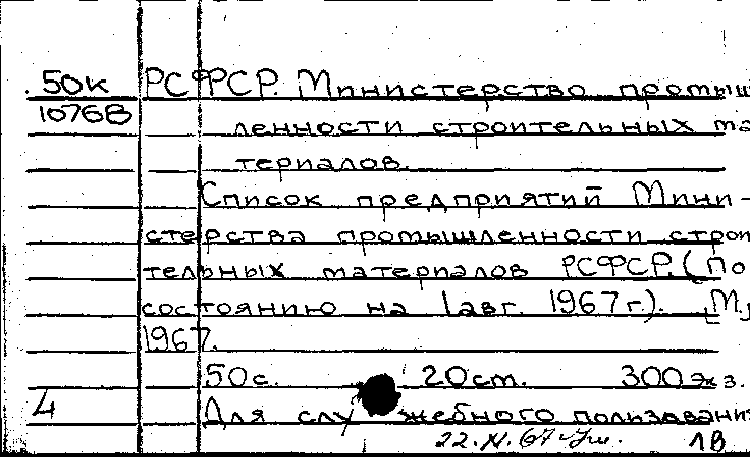 50к РСФСР. Министерство промыш
10768 ленности строительных ма
териалов.
Список предприятий Мини-
стерства промышленности строи
тельных материалов РСФСР. (По
состоянию на 1 авг. 1967 г.). М.,
1967.
50с. 20см. 300экз.
4 Для служебного пользования
22. 67 1В